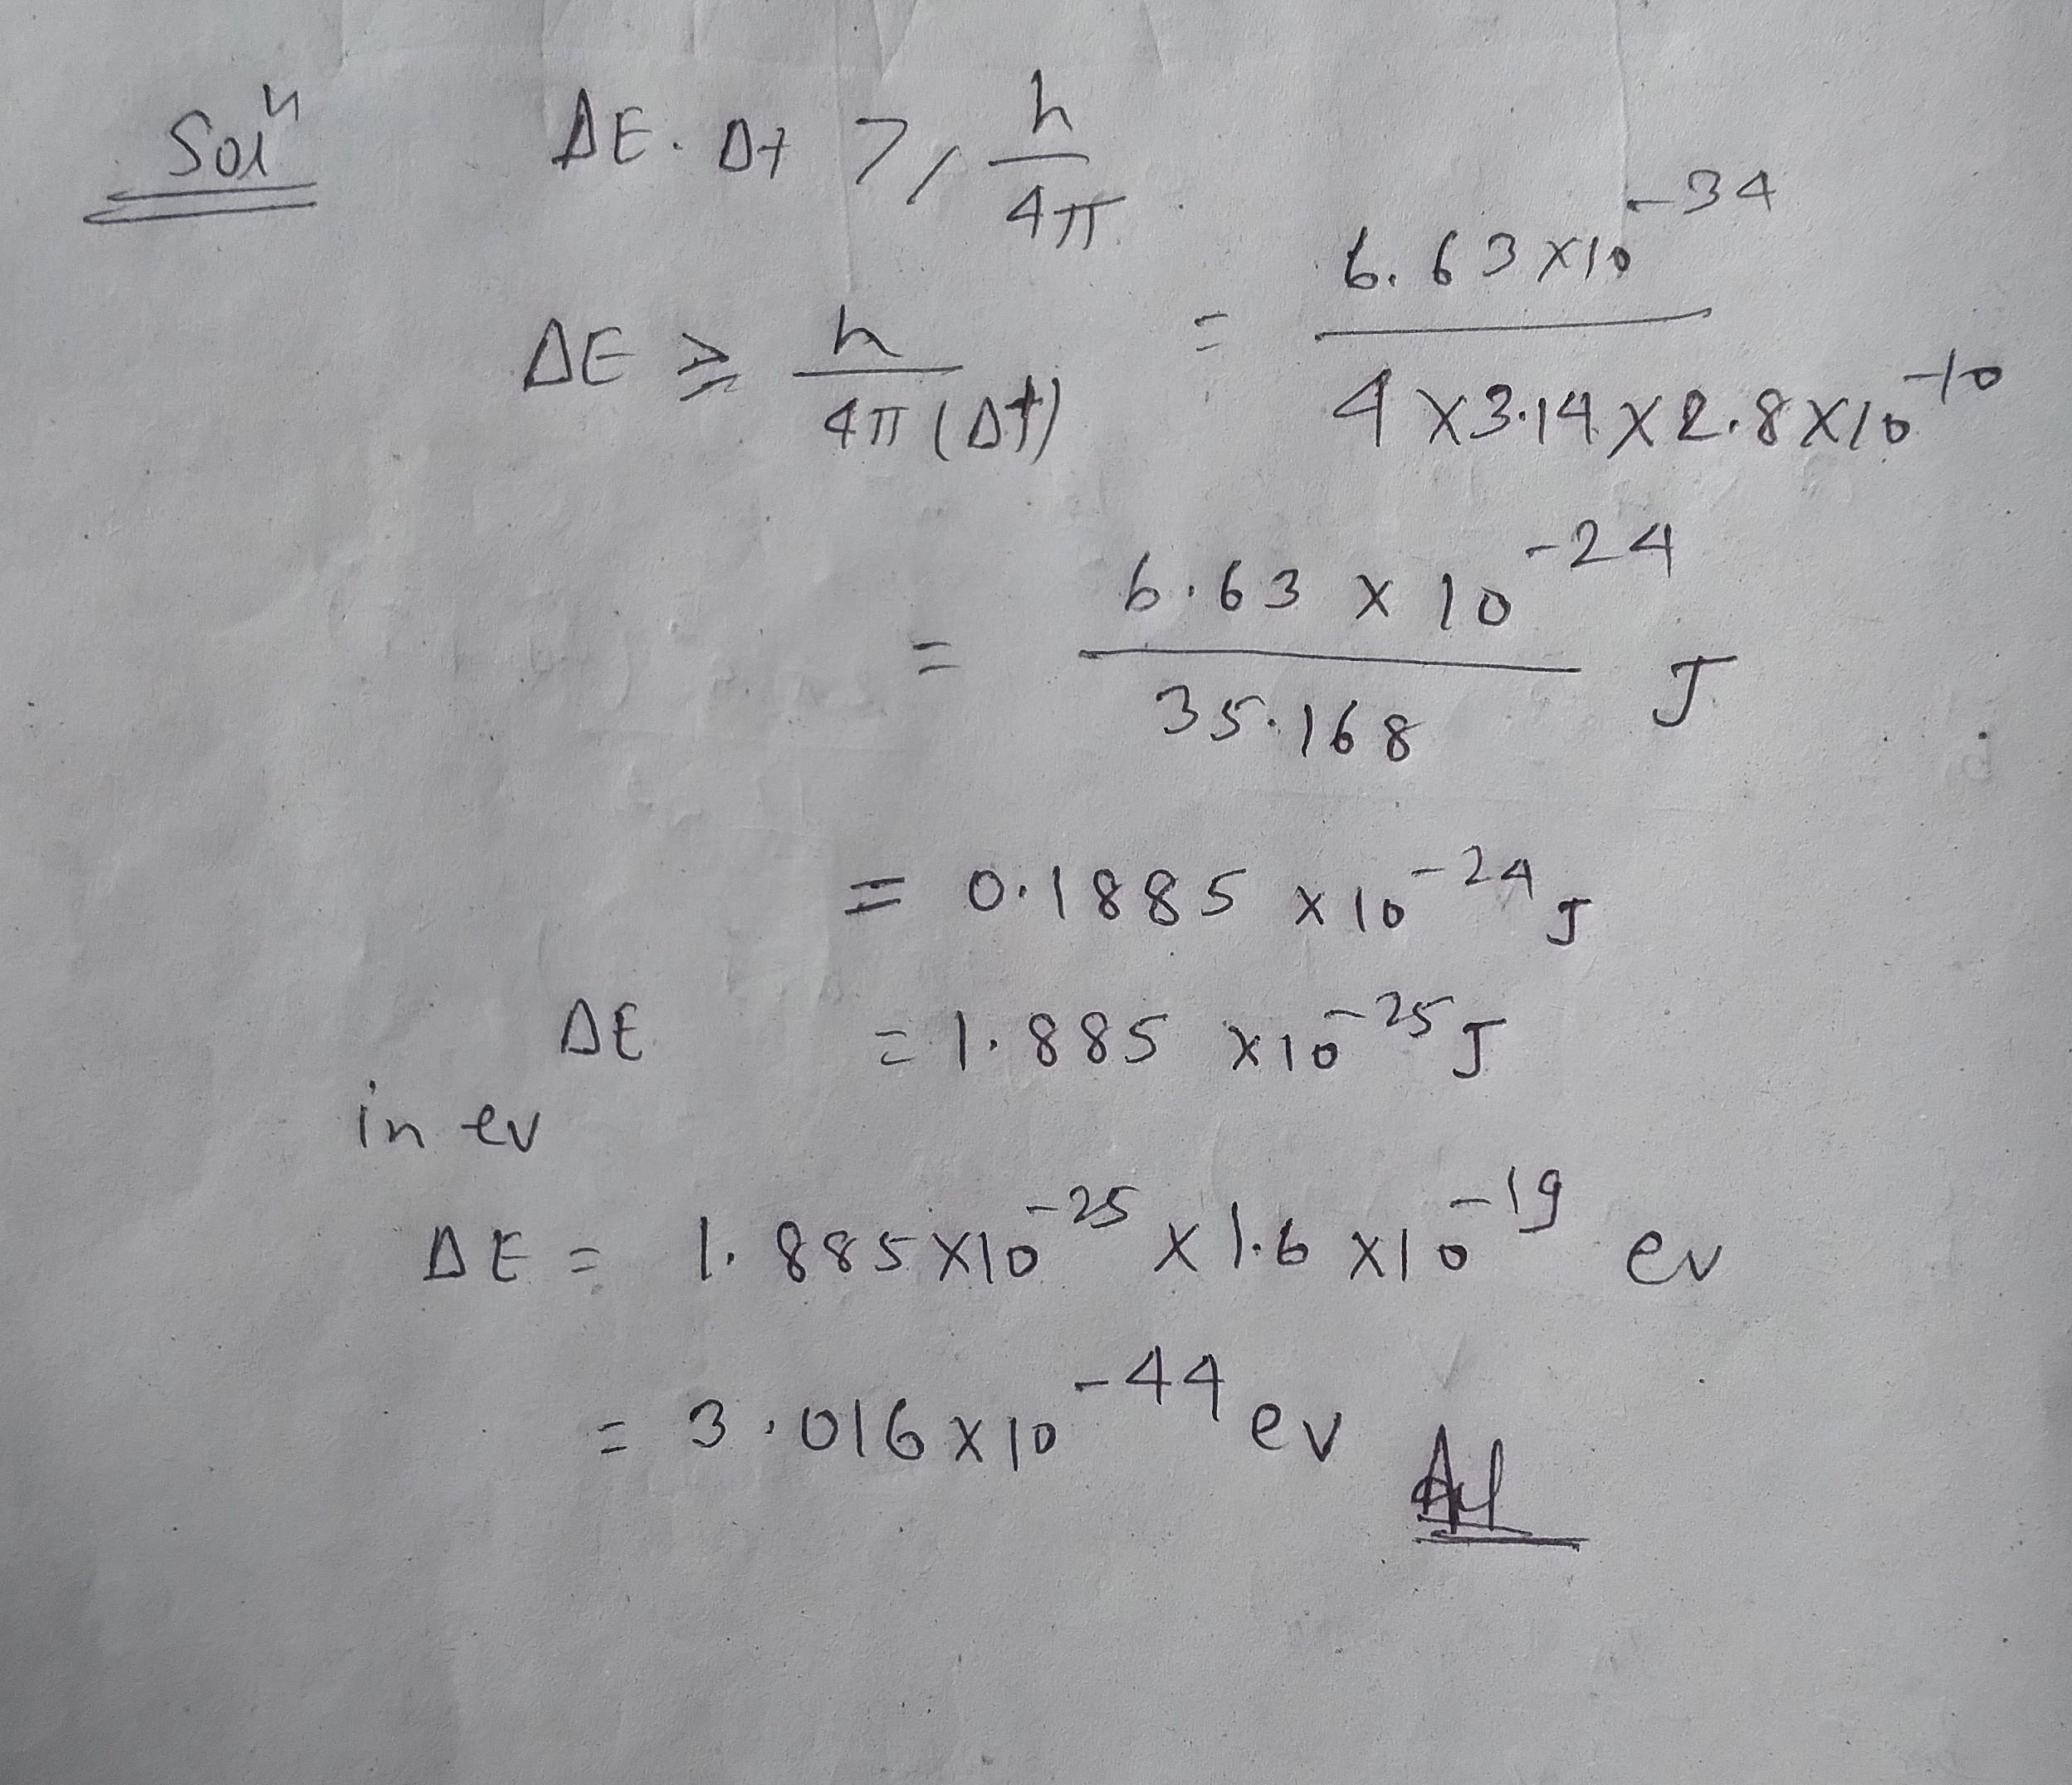 Solⁿ ΔE. Δt ⩾ h/4π
ΔE ≥ h/4π(Δt) = 6.63×10⁻³⁴/4×3.14×2.8×10⁻¹⁰
= 6.63 × 10⁻²⁴/35.168 J
= 0.1885 ×10⁻²⁴ J
ΔE = 1.885 ×10⁻²⁵ J
in ev
ΔE = 1.885×10⁻²⁵ × 1.6 ×10⁻¹⁹ ev
= 3.016×10⁻⁴⁴ ev